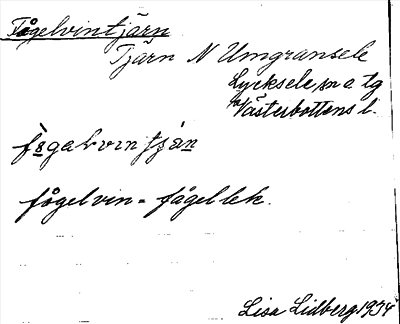 Fågelvintjärn
Tjärn N Umgransele
Lycksele sn a tg
Västerbottens l.
fågelvin = fågellek.
Lisa Lidberg 1934